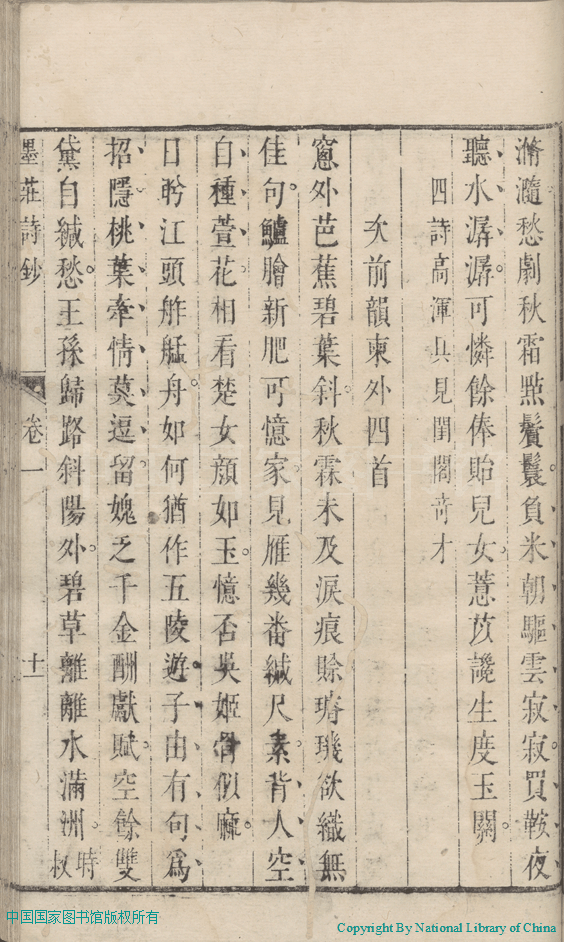 瀡瀡愁劇秋霜㸃鬢鬟負米朝驅雲寂寂買鞍夜
聽水潺潺可憐餘俸貽兒女薏苡讒生度玉關
四詩高渾具見閨閣奇才
次前韻柬外四首
窻外芭蕉碧葉斜秋霖未及淚痕賒璿璣欲織無
佳句鱸膾新肥可憶家見雁幾番緘尺素背人空
自種萱花相看楚女顔如玉憶否吳姬骨似麻
日聆江頭舴艋舟如何猶作五陵遊子由有句爲
招隱桃葉牽情莫逗留媿乏千金酬獻賦空餘雙
黛自緘愁王孫歸路斜陽外碧草離離水滿洲時
叔
墨莊詩鈔
卷一
十一
中国国家图书馆版权所有
Copyright By National Library of China